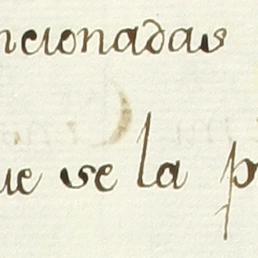 ncionadas
ue se la p